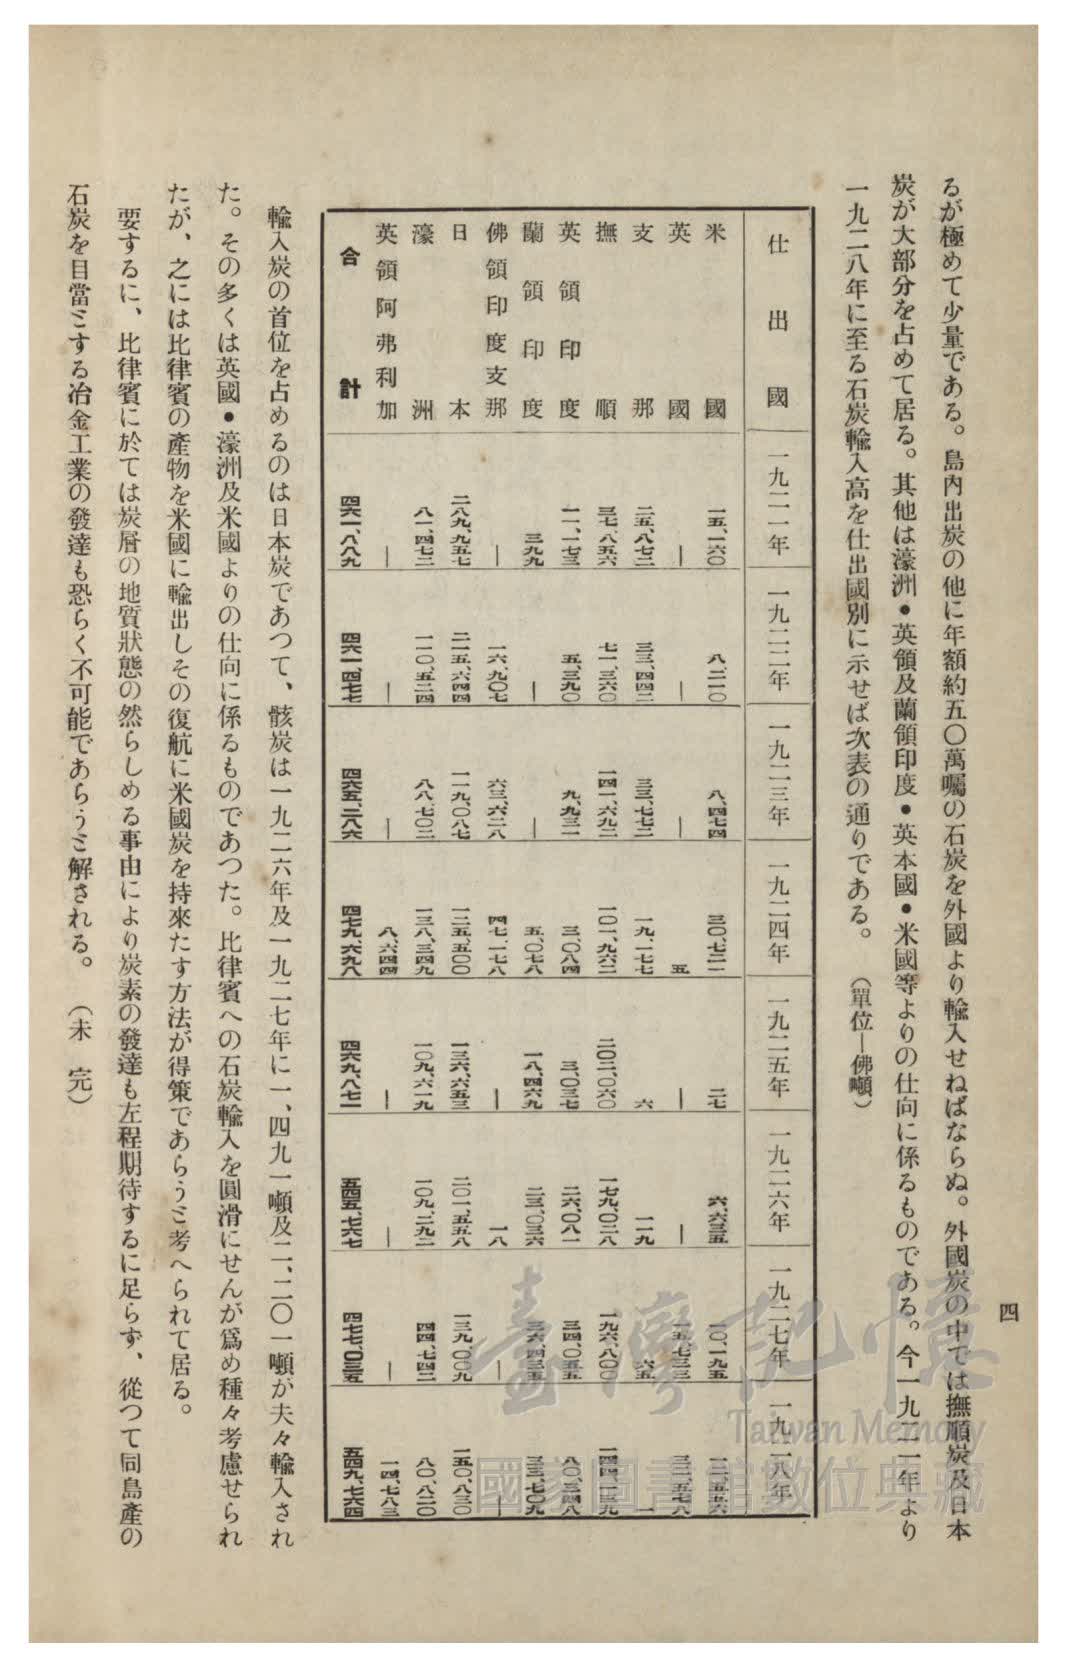 四
るが極めて少量である。島內出炭の他に年額約五〇萬噸の石炭を外國より輸入せねばならぬ。外國炭の中では撫順炭及日本
炭が大部分を占めて居る。其他は濠洲•英領及蘭領印度•英本國•米國等よりの仕向に係るものである。今一九二一年より
一九二八年に至る石炭輸入高を仕出國別に示せば次表の通りである。 (單位―佛噸)
仕出國 一九二一年 一九二二年 一九二三年 一九二四年 一九二五年 一九二六年 一九二七年 一九二八年
米國 一五、一六〇 八、二一〇 八、四七四 三〇、七二一 二七 六、六三五 一〇、一九五 一二、五五六
英國 ― ― ― 五 ― ― 一五、七三三 三二、五七八
支那 二五、八七二 三三、四四二 三三、七七二 一九、一七七 六 一一九 六五 一
撫順 三七、八五六 七一、三六〇 一四一、六九二 一〇一、九六二 二〇二、〇六〇 一七九、〇二八 一九六、八〇〇 一四四、一三九
英領印度 一一、一七三 五、三九〇 九、九三一 三、〇八四 三、〇三七 二六、〇八一 三四、〇五五 八〇、三四八
蘭領印度 三九九 ― ― 五、〇七八 一八、四六九 二三、〇三六 三六、四三五 三三、七〇九
佛領印度支那 ― 一六、九〇七 六三、六二八 四七、一七八 ― 一八 ― ―
日本 二八九、九五七 二一五、六四四 一一九、〇八七 一二五、五〇〇 一三六、六五三 二〇一、五五八 一三九、〇〇九 一五〇、八三〇
濠洲 八一、四七二 一一〇、五二四 八八、七〇二 一三八、三四九 一〇九、六一九 一〇九、二九二 四四、七四二 八〇、八二〇
英領阿弗利加 ― ― ― 八、六四四 ― ― ― 一四、七八三
合計 四六一、八八九 四六一、四七七 四六五、二八六 四七九、六九八 四六九、八七一 五四五、七六七 四七七、〇三五 五四九、七六四
輸入炭の首位を占めるのは日本炭であつて、骸炭は一九二六年及一九二七年に一、四九一噸及二、二〇一噸が夫々輸入され
た。その多くは英國•濠洲及米國よりの仕向に係るものであつた。比律賓への石炭輸入を圓滑にせんが爲め種々考慮せられ
たが、之には比律賓の產物を米國に輸出しその復航に米國炭を持來たす方法が得策であらうと考へられて居る。
要するに、比律賓に於ては炭層の地質狀態の然らしめる事由により炭素の發達も左程期待するに足らず、從つて同島產の
石炭を目當とする冶金工業の發達も恐らく不可能であらうと解される。 (未 完)
臺灣記憶
Taiwan Memory
國家圖書館數位典藏